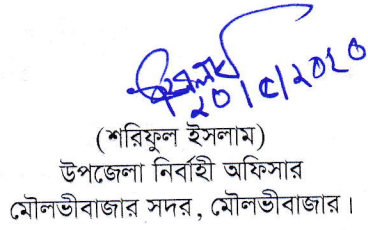 ২০/৫/২০২০
(শরিফুল ইসলাম)
উপজেলা নির্বাহী অফিসার
মৌলভীবাজার সদর, মৌলভীবাজার।